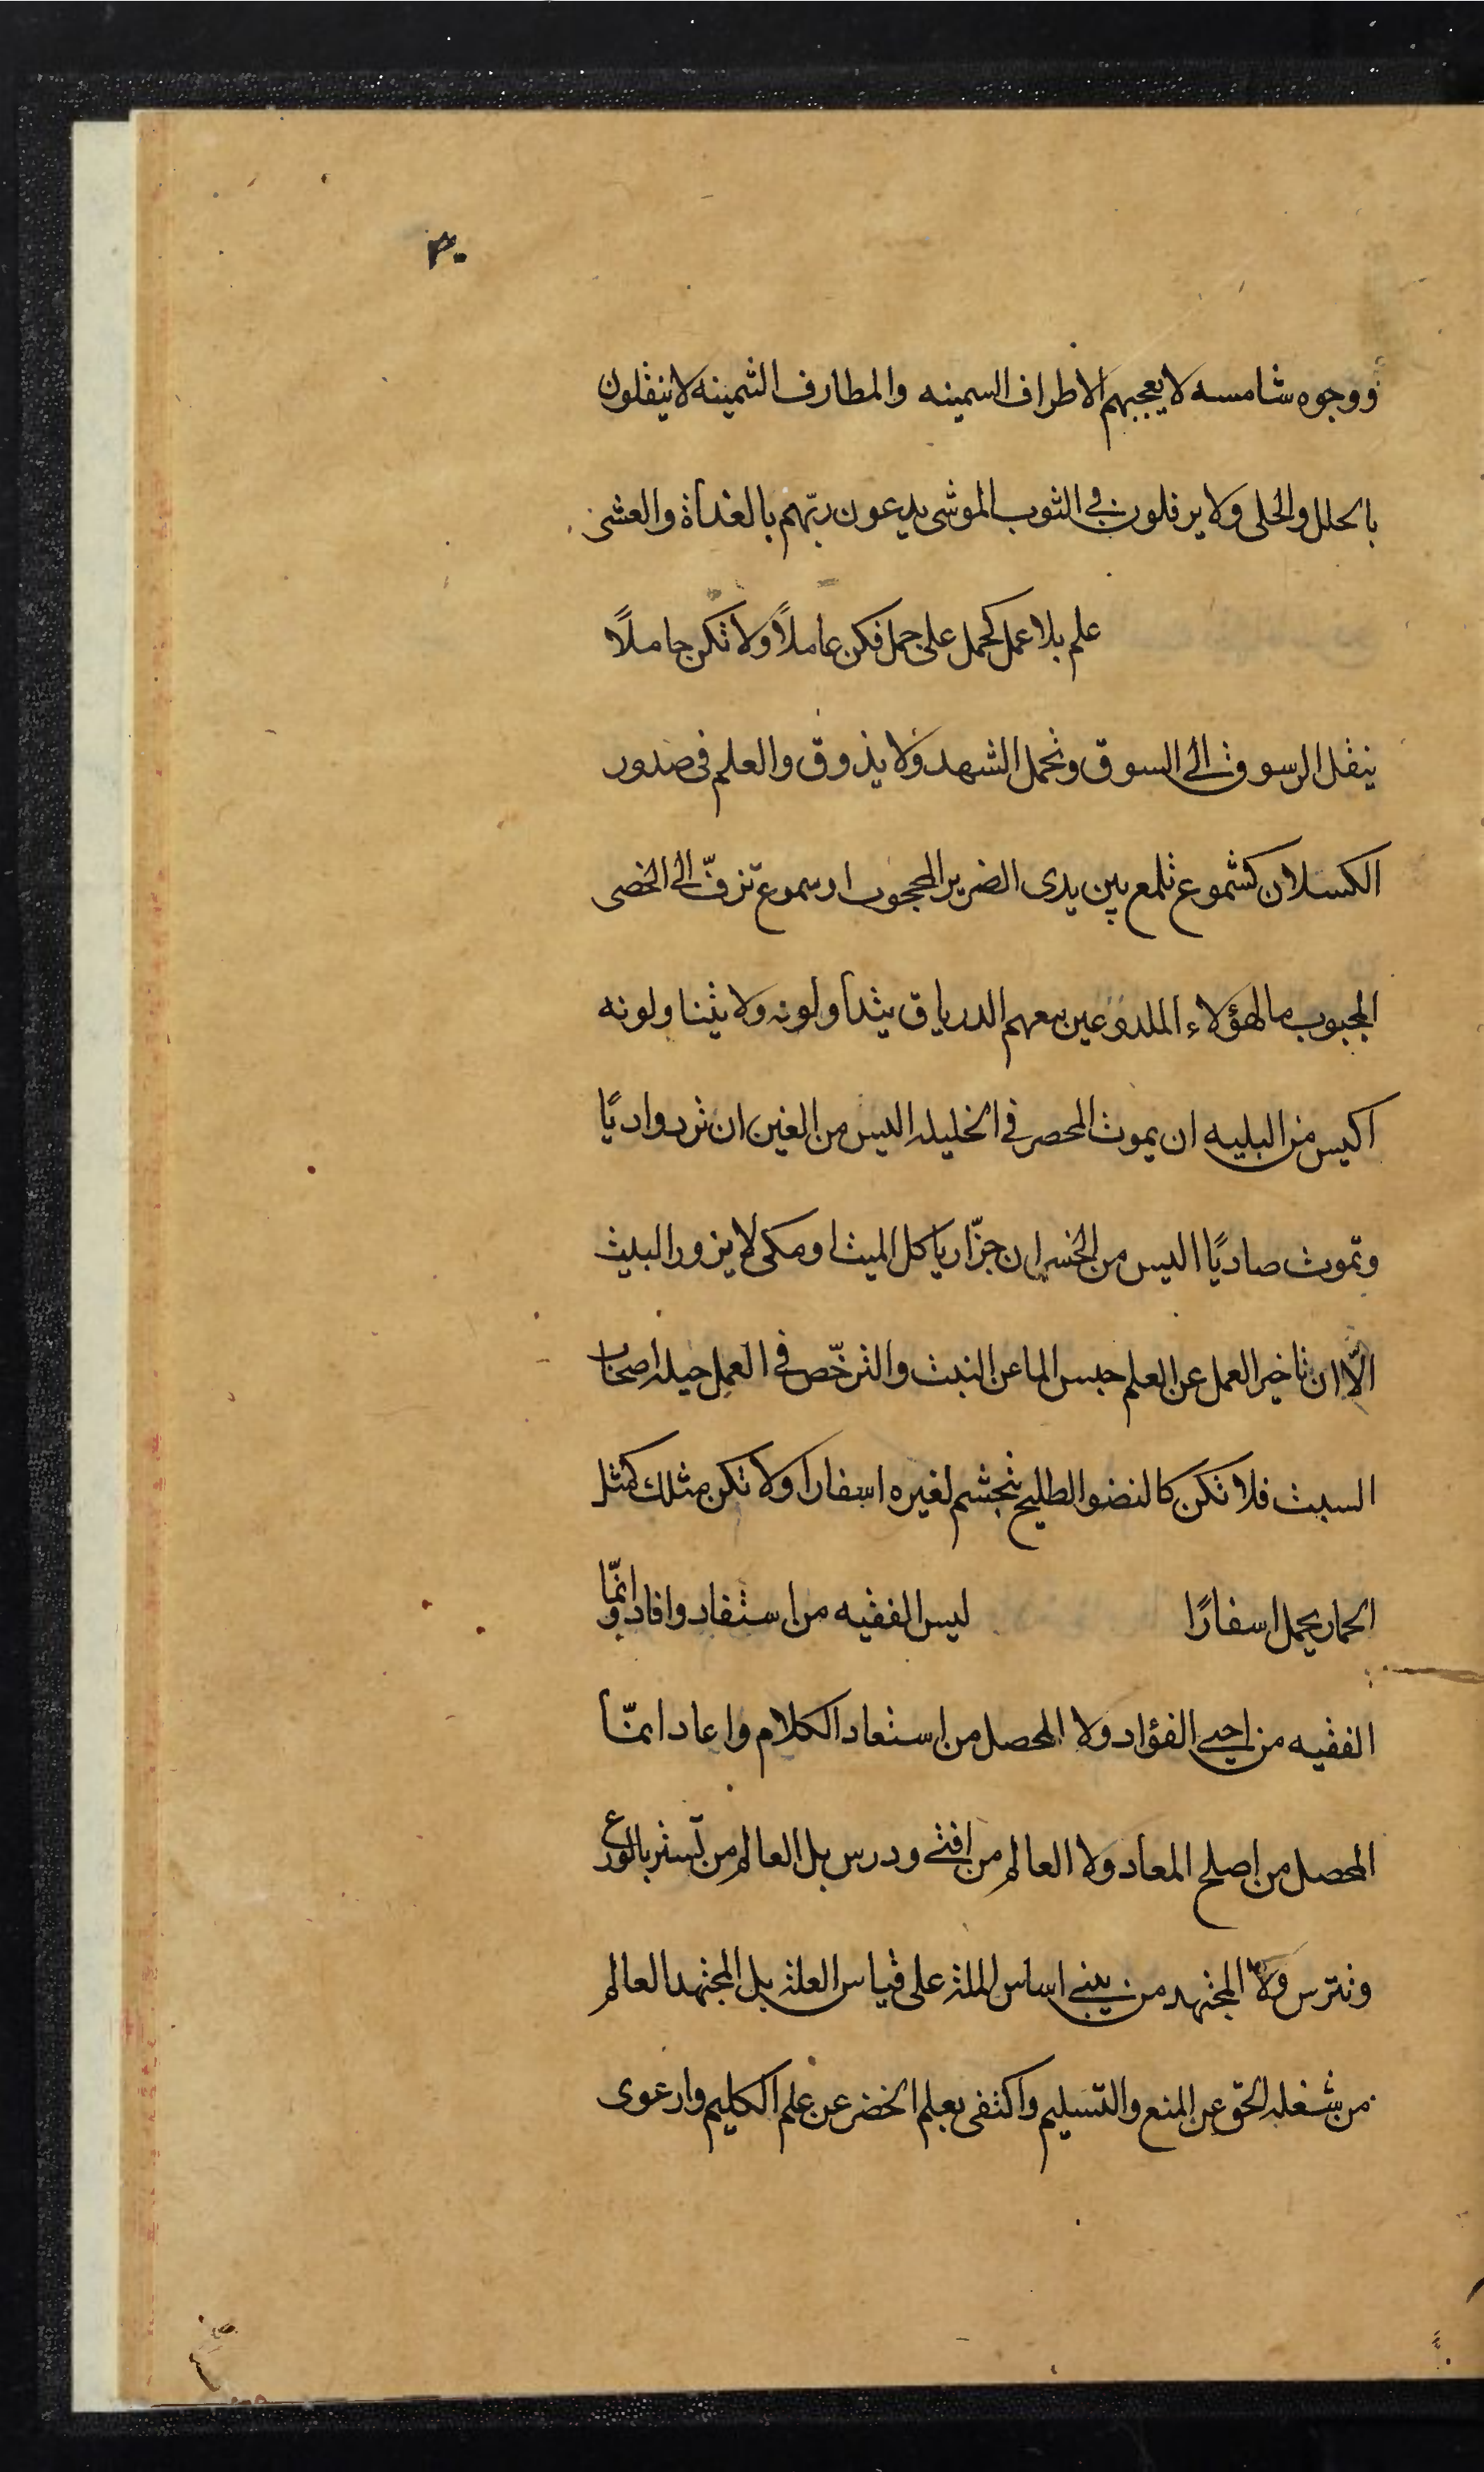 ٣٠
ووجوه شامسه لا يعجبهم الاطراف السمينه والمطارف الثمينه لا يثقلون
بالحلل والحلى ولا يرفلون فى الثوب الموشى يدعون ربّهم بالغداة والعشى
علم بلا عمل كحمل على جمل فكن عاملًا ولا تكن حاملًا
ينقل الوسوق الى السوق ويحمل الشهد ولا يذوق والعلم فى صدور
الكسلان كشموع تلمع بين يدى الضرير المحجوب او شموع تزفّ الى الخصى
المجبوب ما لهؤلاء الملدوغين معهم الدرياق يتداولونه ولا يتناولونه
اليس من البليه ان يموت المحصر فى الخليله اليس من الغبن ان ترد واديًا
وتموت صاديًا اليس من الخسران جزّار ياكل الميتا ومكى لا يزور البيت
الّا ان تاخير العمل عن العلم حبس الما عن النبت والترخّص فى العمل حيله اصحاب
السبت فلا تكن كالنضو الطليح تجشم لغيره اسفارا ولا تكن مثلك كمثل
الحمار يحمل اسفارًا ليس الفقيه من استفاد وافاد انّما
الفقيه من احيى الفؤاد ولا المحصل من استعاد الكلام واعاد انمّا
المحصل من اصلح المعاد ولا العالم من افتى ودرس بل العالم من تستر بالورع
وتترس ولا المجتهد من يبنى اساس الملة على قياس العلة بل المجتهد العالم
من شغله الحق عن المنع والتسليم واكتفى بعلم الخضر عن علم الكليم وارعوى